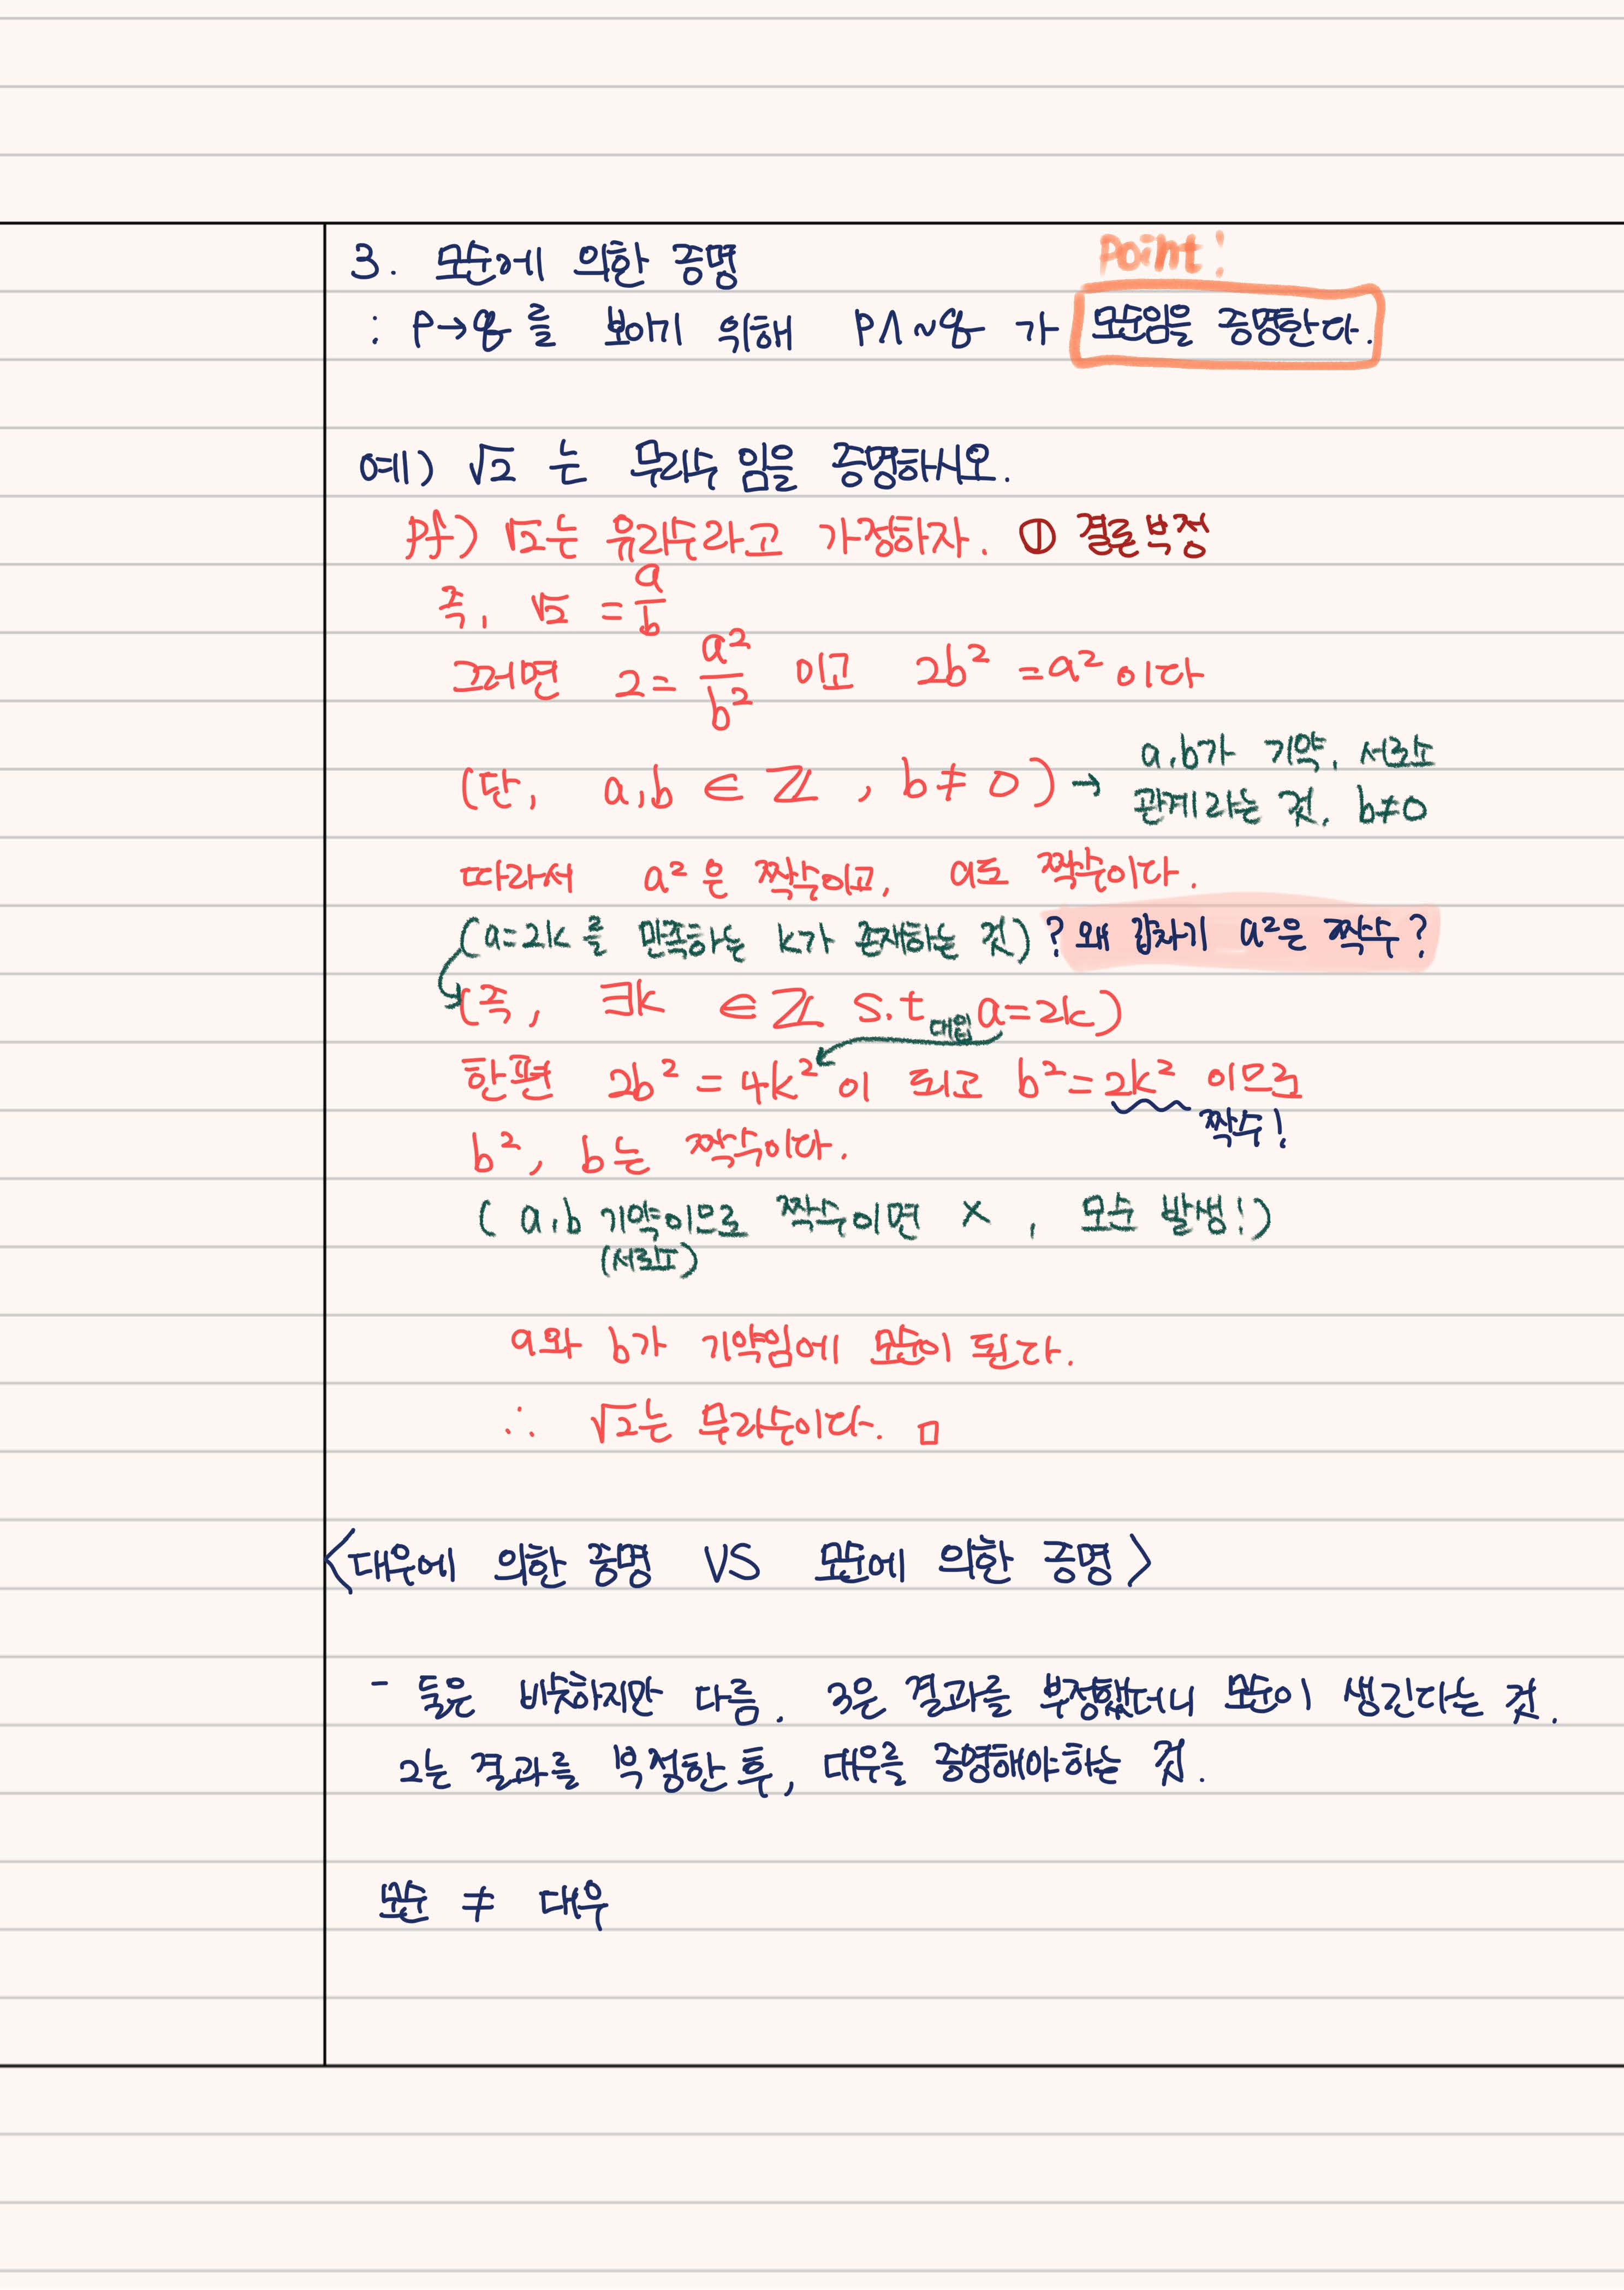 Point!
3. 모순에 의한 증명
: P→q를 보이기 위해 P∧~q 가 모순임을 증명한다.
예) √2 는 무리수 임을 증명하시오.
pf) √2는 유리수라고 가정하자. ① 결론부정
즉, √2 = a/b
그러면 2 = a²/b² 이고 2b² = a² 이다
(단, a,b ∈ ℤ , b≠0) → a,b가 기약, 서로소
관계라는 것, b≠0
따라서 a²은 짝수이고, a도 짝수이다.
(a=2k를 만족하는 k가 존재하는 것) ? 왜 갑자기 a²은 짝수?
(즉, ∃k ∈ ℤ s.t a=2k)
대입
한편 2b² = 4k² 이 되고 b² = 2k² 이므로
짝수!
b², b는 짝수이다.
( a,b 기약이므로 짝수이면 × , 모순 발생!)
(서로소)
a와 b가 기약임에 모순이 된다.
∴ √2는 무리수이다. □
<대우에 의한 증명 VS 모순에 의한 증명>
- 둘은 비슷하지만 다름. 3은 결과를 부정했더니 모순이 생긴다는 것.
2는 결과를 부정한 후, 대우를 증명해야하는 것.
모순 ≠ 대우